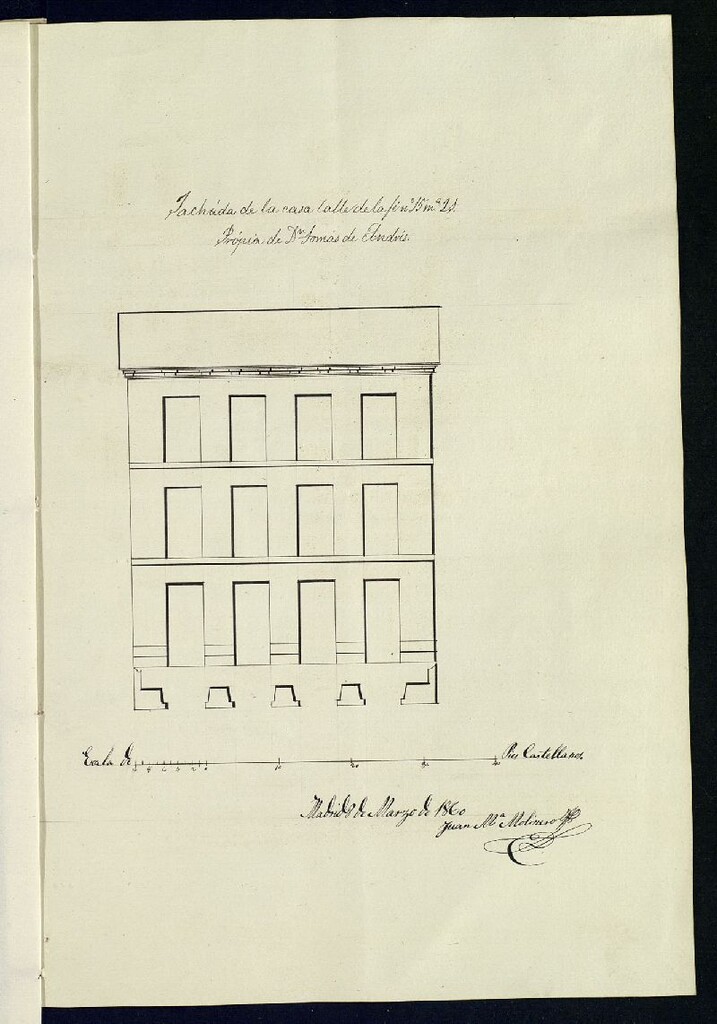 Fachada de la casa Calle de la fé nº 15 mª 21
Própia de Dn Tomás de Andrés.
Escala de
10 20 30 40
Pies Castellanos
Madrid 8 de Marzo de 1860
Juan Mª Molinero